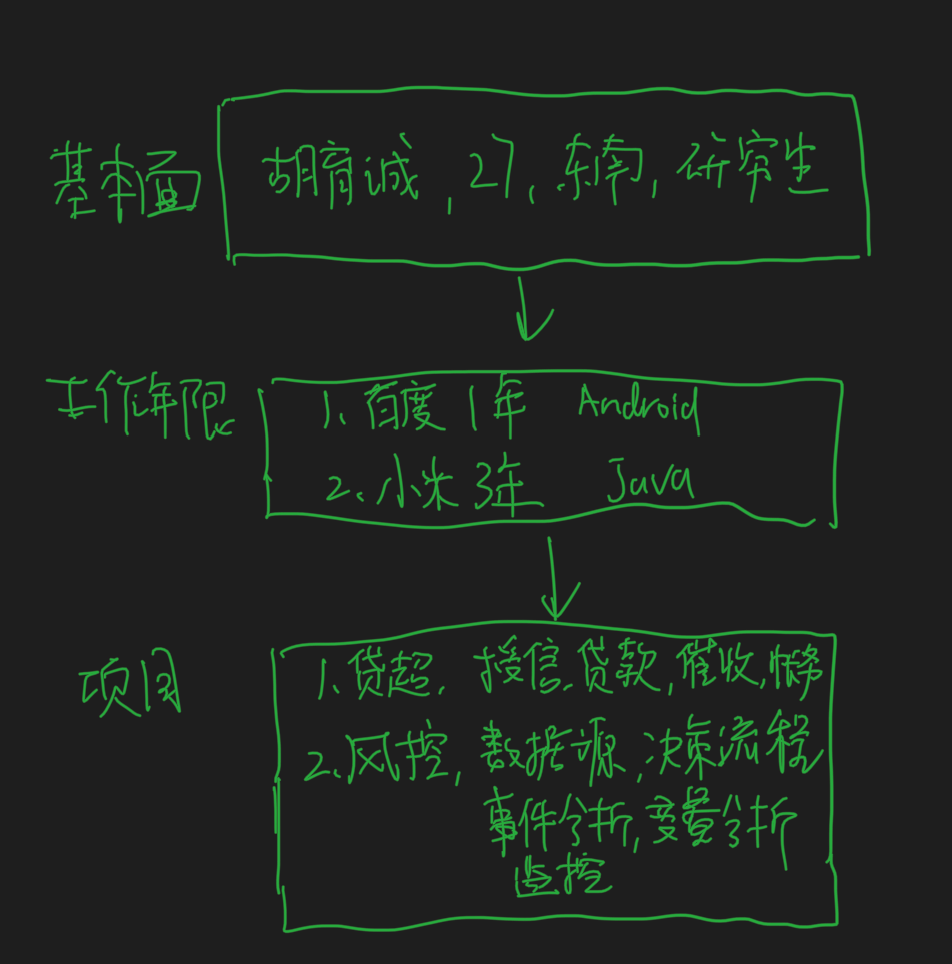 基本面
胡育诚,27,东南,研究生
工作年限
1、百度1年 Android
2、小米3年 Java
项目
1、贷超,授信,贷款,催收,帐务
2、风控,数据源,决策流程
事件分析,变量分析
监控